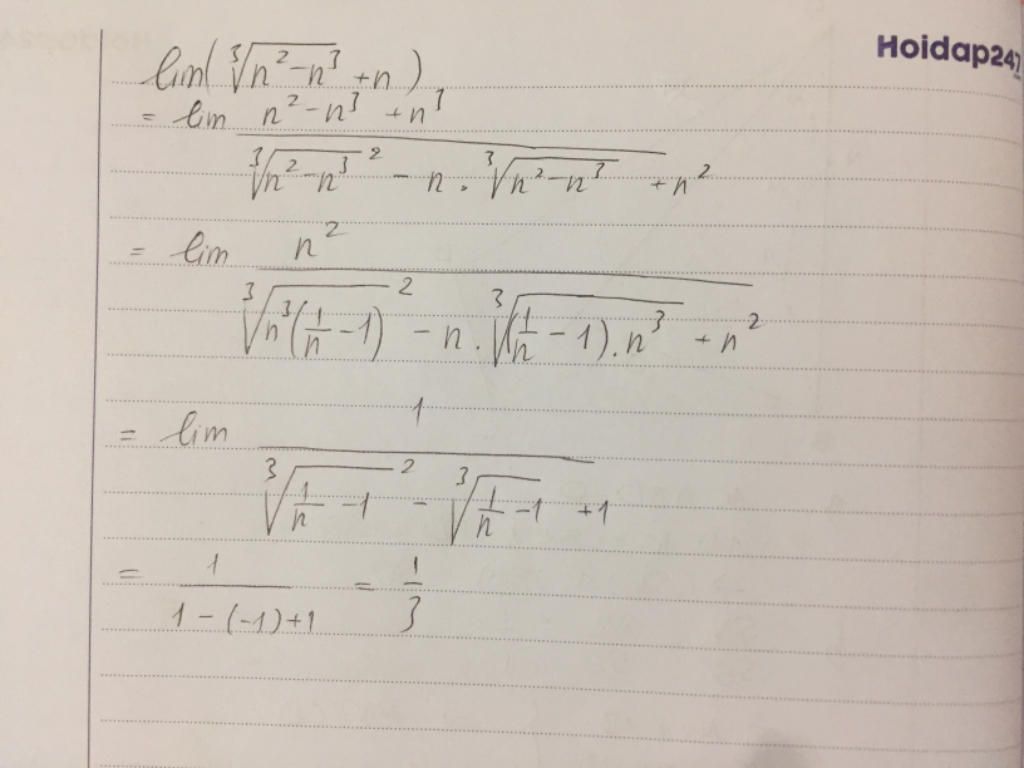 Hoidap247
lim(∛(n²-n³) +n)
= lim (n²-n³ +n³)/(∛(n²-n³)² - n . ∛(n²-n³) + n²)
= lim n²/(∛(n³(1/n -1))² - n . ∛((1/n -1) . n³) + n²)
= lim 1/(∛(1/n -1)² - ∛(1/n -1) +1)
= 1/(1-(-1)+1) = 1/3